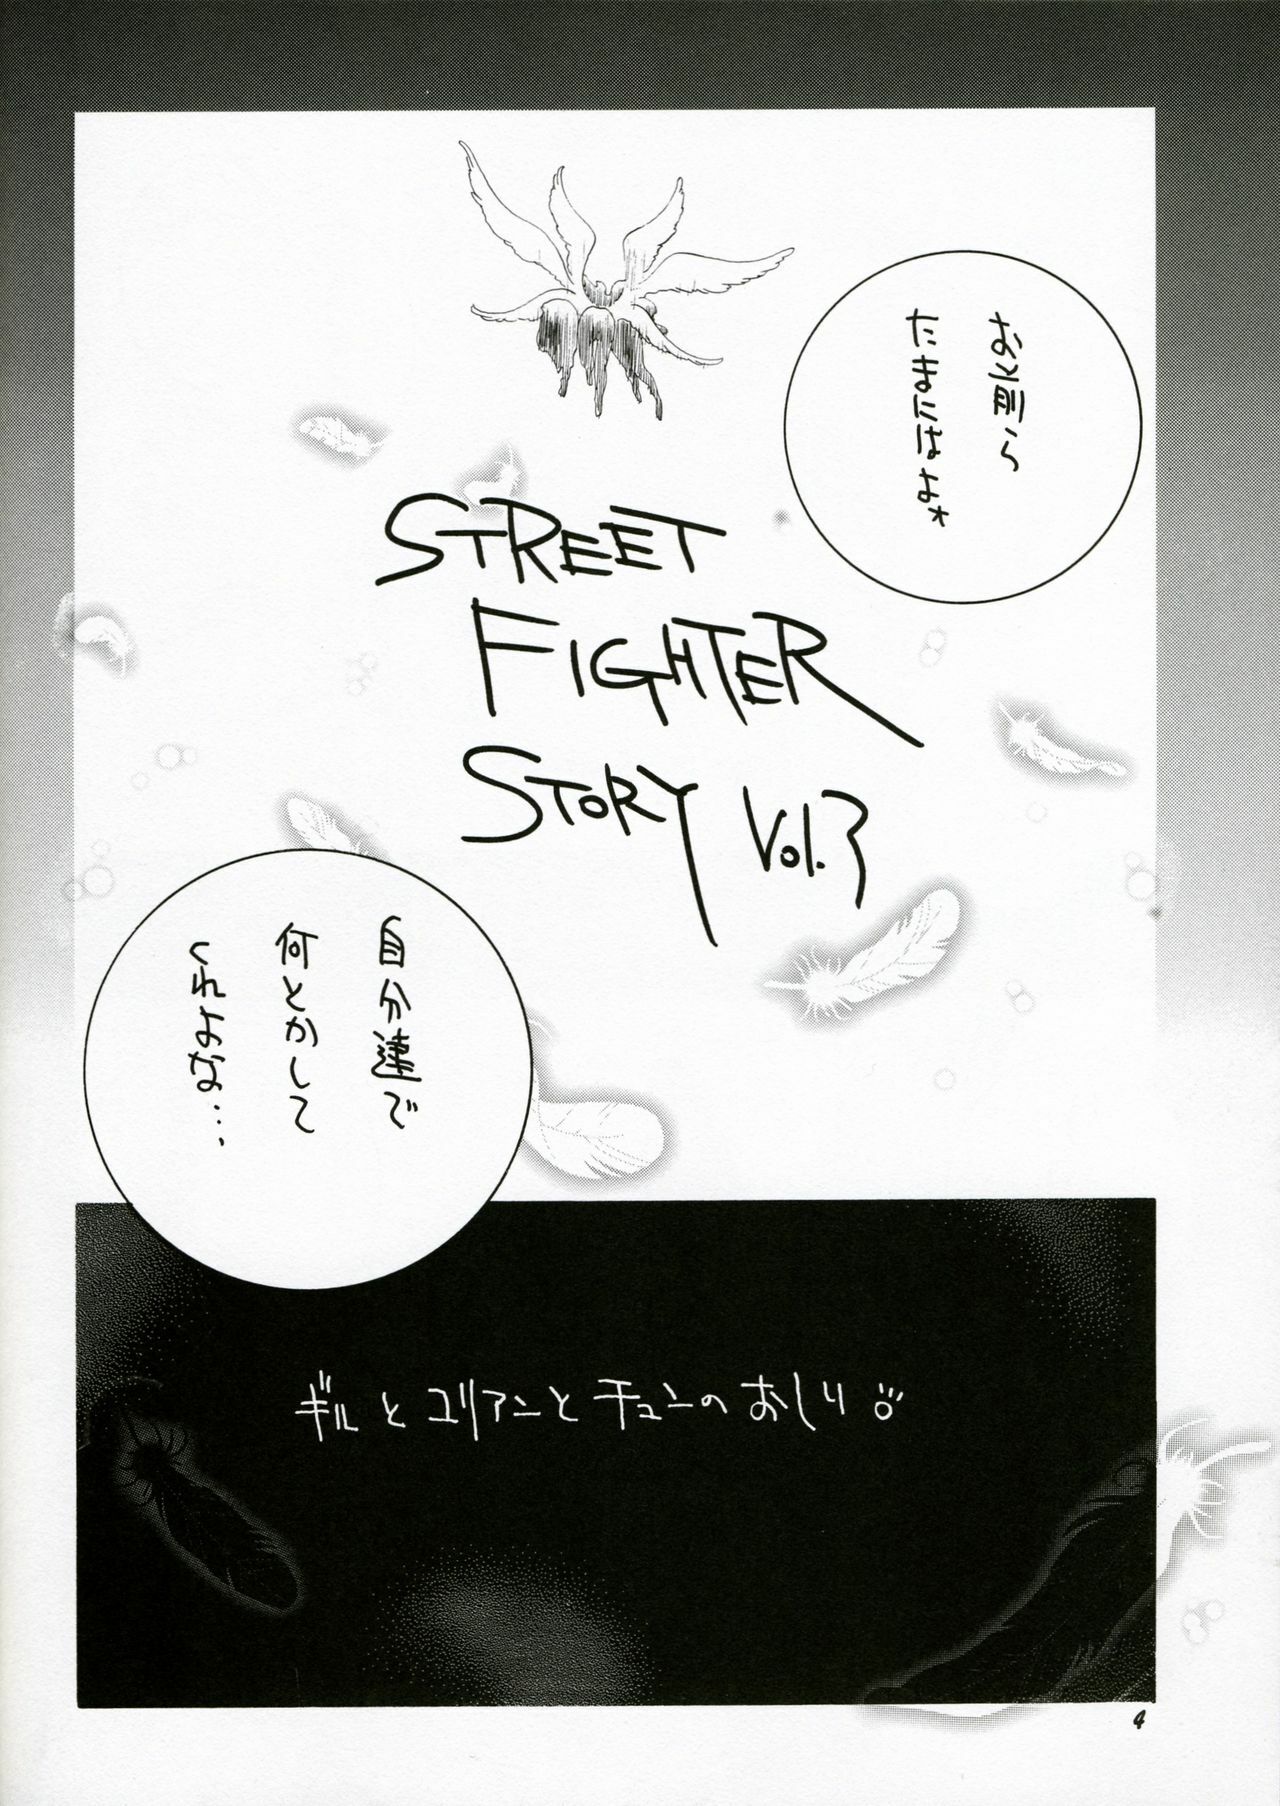 お前ら
たまにはよ★
STREET
FIGHTER
STORY Vol.3
自分達で
何とかして
くれよな…。
ギルとユリアンとチュンのおしり
4